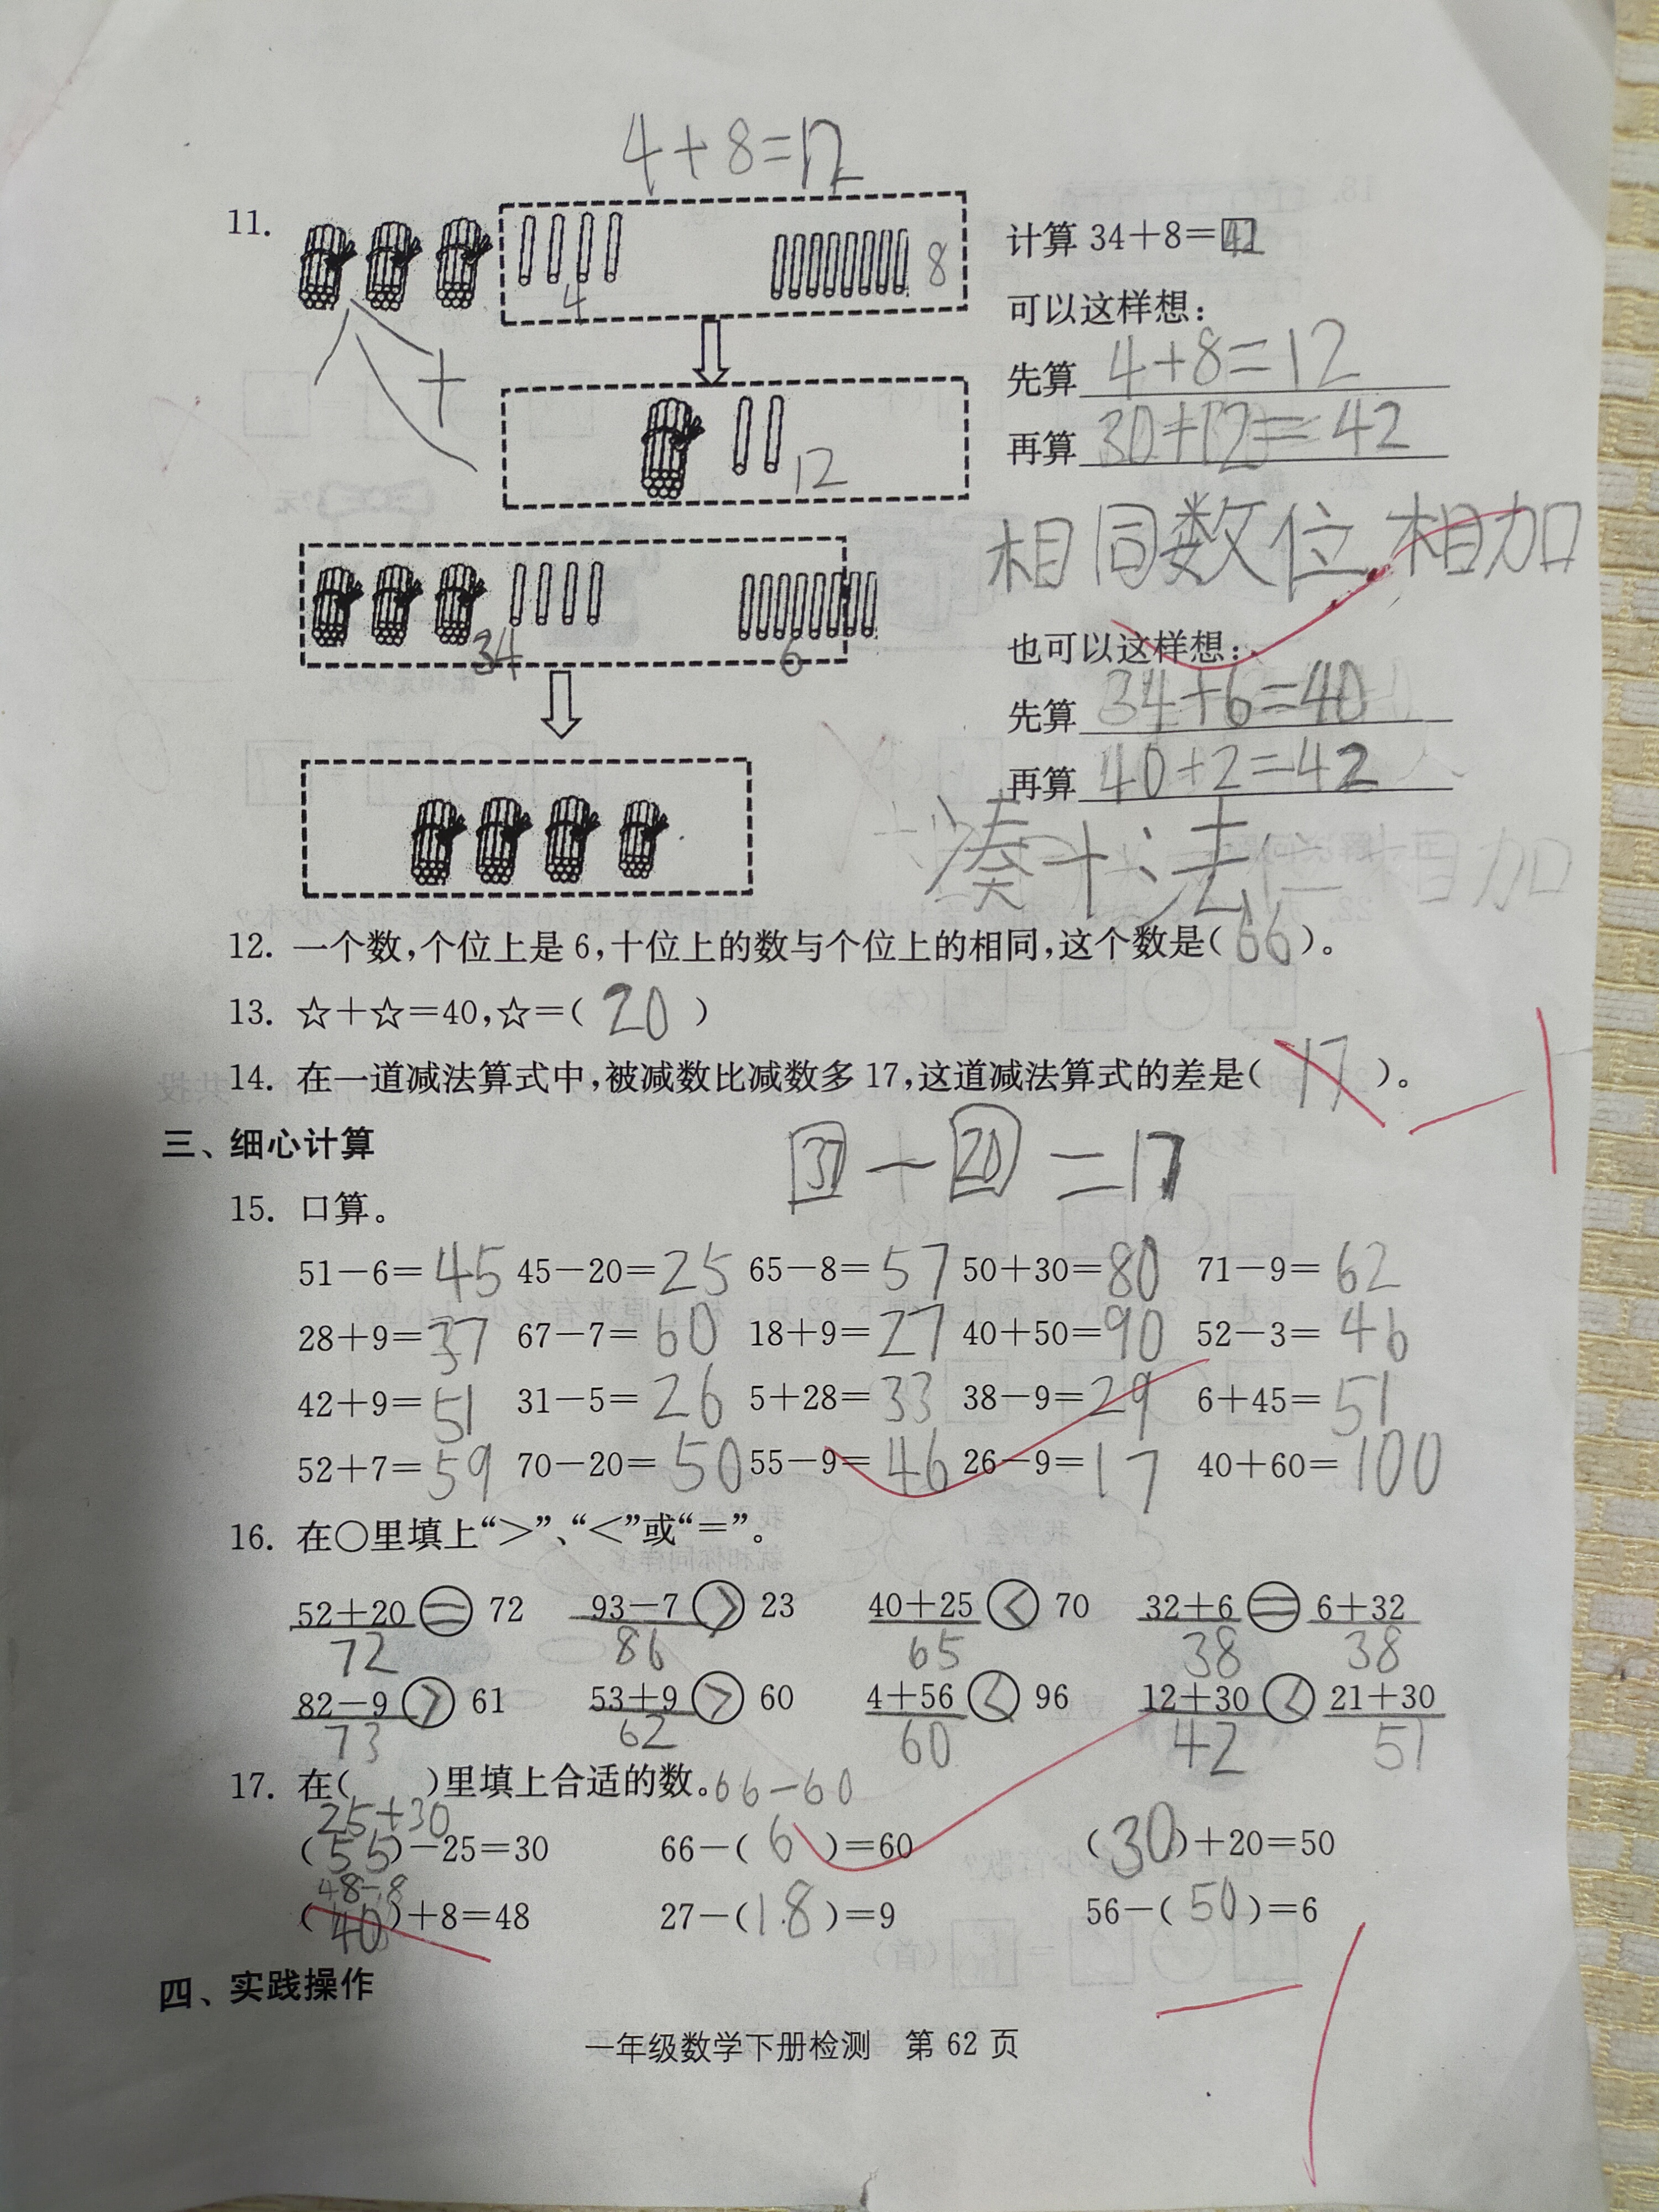 4+8=12
11. 4 8 计算 34+8=42
可以这样想:
先算 4+8=12
12 再算 30+12=42
相同数位相加
34 6 也可以这样想:
先算 34+6=40
再算 40+2=42
凑十法 相加
12. 一个数,个位上是 6,十位上的数与个位上的相同,这个数是( 66 )。
13. ☆+☆=40,☆=( 20 )
14. 在一道减法算式中,被减数比减数多 17,这道减法算式的差是( 17 )。 -1
三、细心计算
37-20=17
15. 口算。
51-6=45 45-20=25 65-8=57 50+30=80 71-9=62
28+9=37 67-7=60 18+9=27 40+50=90 52-3=46
42+9=51 31-5=26 5+28=33 38-9=29 6+45=51
52+7=59 70-20=50 55-9=46 26-9=17 40+60=100
16. 在○里填上“>”、“<”或“=”。
52+20 = 72 93-7 > 23 40+25 < 70 32+6 = 6+32
72 86 65 38 38
82-9 > 61 53+9 > 60 4+56 < 96 12+30 < 21+30
73 62 60 42 51
17. 在( )里填上合适的数。66-60
25+30
(55)-25=30 66-( 6 )=60 (30)+20=50
48-8
(40)+8=48 27-(18)=9 56-( 50 )=6
-1
四、实践操作
一年级数学下册检测 第 62 页